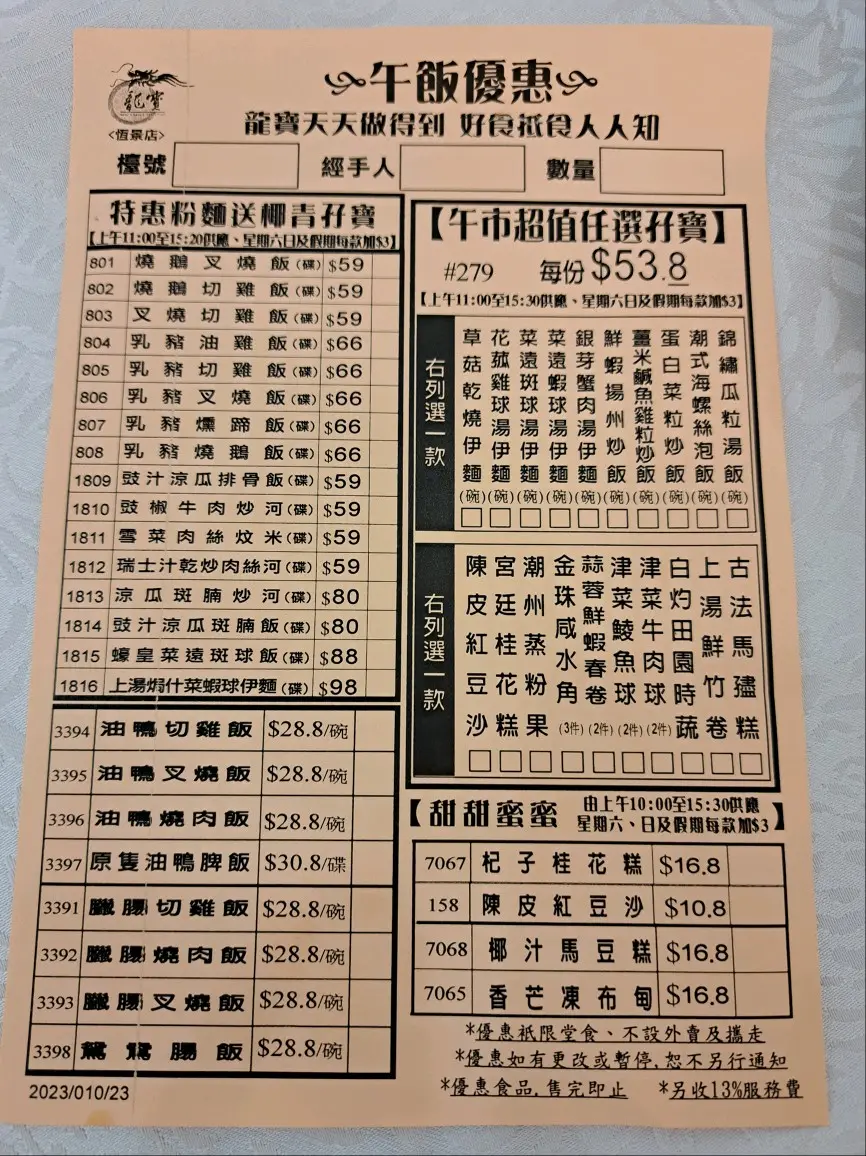 龍寶
<恆景店>
午飯優惠
龍寶天天做得到 好食抵食人人知
檯號
經手人
數量
特惠粉麵送椰青孖寶
【上午11:00至15:20供應、星期六日及假期每款加$3】
801 燒鵝叉燒飯(碟) $59
802 燒鵝切雞飯(碟) $59
803 叉燒切雞飯(碟) $59
804 乳豬油雞飯(碟) $66
805 乳豬切雞飯(碟) $66
806 乳豬叉燒飯(碟) $66
807 乳豬燻蹄飯(碟) $66
808 乳豬燒鵝飯(碟) $66
1809 豉汁涼瓜排骨飯(碟) $59
1810 豉椒牛肉炒河(碟) $59
1811 雪菜肉絲炆米(碟) $59
1812 瑞士汁乾炒肉絲河(碟) $59
1813 涼瓜斑腩炒河(碟) $80
1814 豉汁涼瓜斑腩飯(碟) $80
1815 蠔皇菜遠斑球飯(碟) $88
1816 上湯焗什菜蝦球伊麵(碟) $98
3394 油鴨切雞飯 $28.8/碗
3395 油鴨叉燒飯 $28.8/碗
3396 油鴨燒肉飯 $28.8/碗
3397 原隻油鴨脾飯 $30.8/碟
3391 臘腸切雞飯 $28.8/碗
3392 臘腸燒肉飯 $28.8/碗
3393 臘腸叉燒飯 $28.8/碗
3398 鴛鴦腸飯 $28.8/碗
2023/010/23
【午市超值任選孖寶】
#279 每份$53.8
【上午11:00至15:30供應、星期六日及假期每款加$3】
右列選一款
錦繡瓜粒湯飯(碗)
潮式海螺絲泡飯(碗)
蛋白菜粒炒飯(碗)
薑米鹹魚雞粒炒飯(碗)
鮮蝦揚州炒飯(碗)
銀芽蟹肉湯伊麵(碗)
菜遠蝦球湯伊麵(碗)
菜遠斑球湯伊麵(碗)
花菰雞球湯伊麵(碗)
草菇乾燒伊麵(碗)
右列選一款
古法馬𥻵糕
上湯鮮竹卷
白灼田園時蔬
津菜牛肉球(2件)
津菜鯪魚球(2件)
蒜蓉鮮蝦春卷(2件)
金珠咸水角(3件)
潮州蒸粉果
宮廷桂花糕
陳皮紅豆沙
【甜甜蜜蜜 由上午10:00至15:30供應
星期六、日及假期每款加$3】
7067 杞子桂花糕 $16.8
158 陳皮紅豆沙 $10.8
7068 椰汁馬豆糕 $16.8
7065 香芒凍布甸 $16.8
*優惠衹限堂食、不設外賣及攜走
*優惠如有更改或暫停,恕不另行通知
*優惠食品,售完即止 *另收13%服務費